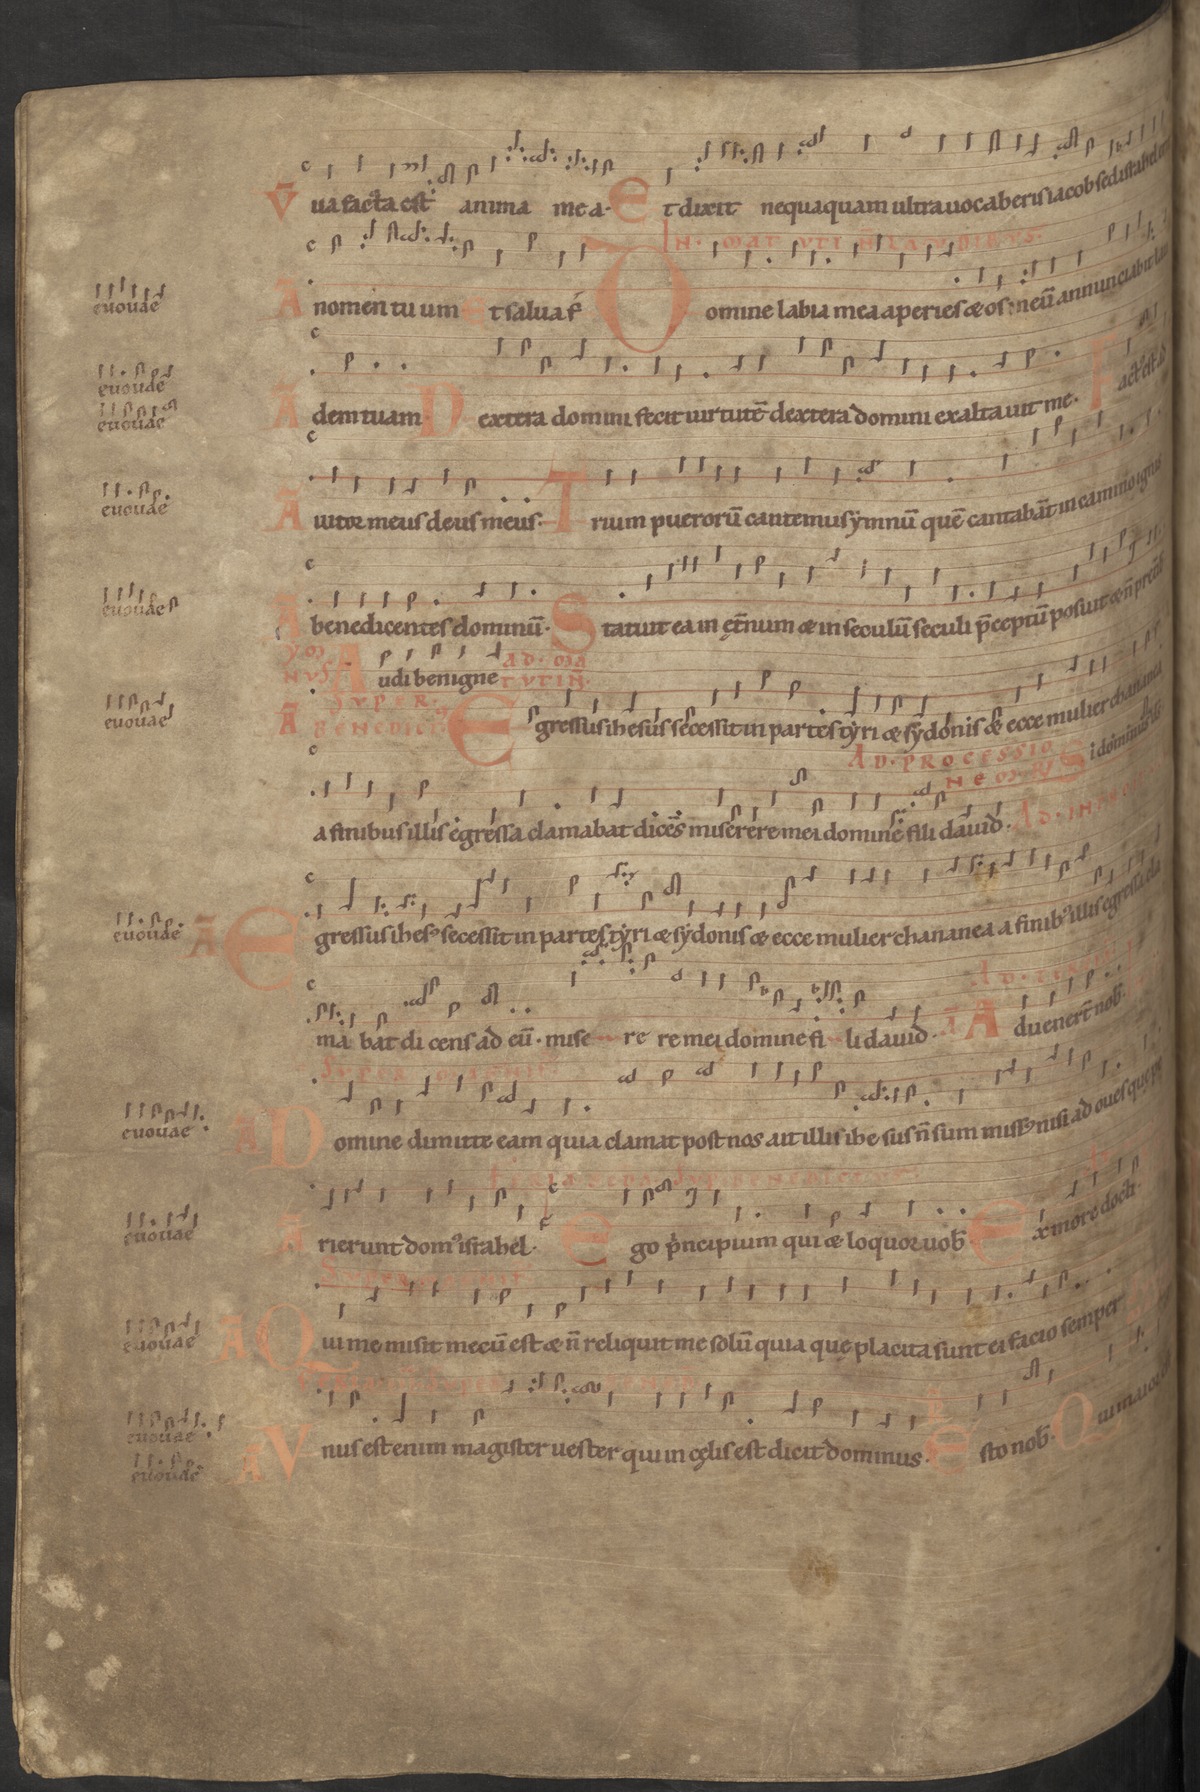 V̄ ua facta est anima mea· Et dixit nequaquam ultra uocaberis iacob sed israhel erit
IN· MATVTINIS LAVDIBVS·
euouae A nomen tuum et salua f̄ Domine labia mea aperies & os meū annunciabit lau
euouae
euouae A dem tuam Dextera domini fecit uirtutē dextera domini exaltauit me· Fact' est
euouae A iutor meus deus meus· Trium puerorū cantemus ymnū quē cantabāt in camino ignis
euouae A benedicentes dominū· Statuit ea in et̄num & in seculū seculi p̄ceptū posuit & n̄ p̄
YMNVS Audi benigne AD· MATVTIN̄
SVPER
euouae A BENEDICT Egressus ihesus secessit in partes tyri & sydonis & ecce mulier chananea
AD· PROCESSIONEM· Si dominus
a finibus illis egressa clamabat dicēs miserere mei domine fili dauid· AD· INTROITŪ
euouae A Egressus ihes' secessit in partes tyri & sydonis & ecce mulier chananea a finib' illis egressa cla
mabat dicens ad eū· misere re mei domine fili dauid· A duenert̄ nob̄
SVPER
euouae A Domine dimitte eam quia clamat post nos ait illis ihesus n̄ sum miss' nisi ad oues que pe
euouae A rierunt dom' israhel· Ego p̄ncipium qui & loquor uob̄ Ex more docti
euouae A Qui me misit mecū est & n̄ reliquit me solū quia que placita sunt ei facio semper
euouae
euouae A Vnus est enim magister uester qui in cęlis est dicit dominus· Esto nob̄· Qui maior